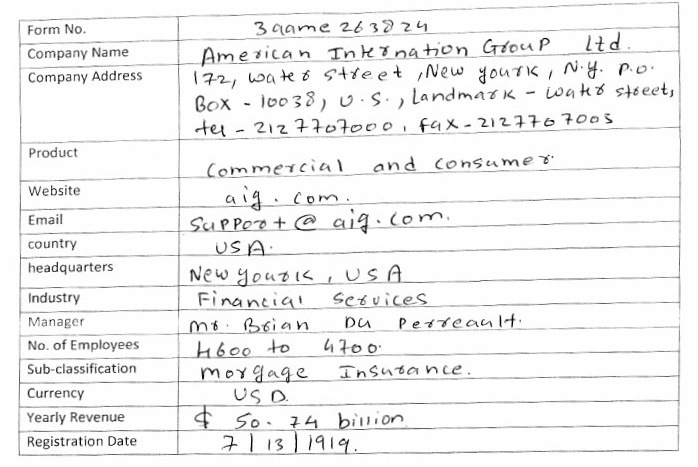 Form No. 3 aame 263824
Company Name American Internation Group Ltd.
Company Address 172, water street, New yourk, N.Y. P.O.
Box - 10038, U.S., Landmark - water street,
tel - 2127707000, fax - 2127707003
Product Commercial and consumer
Website aig.com.
Email Support@aig.com.
country USA.
headquarters New yourk, USA
Industry Financial Services
Manager Mr. Brian Du Perreault.
No. of Employees 4600 to 4700.
Sub-classification morgage Insurance.
Currency USD.
Yearly Revenue $ 50.74 billion
Registration Date 7|13|1919.